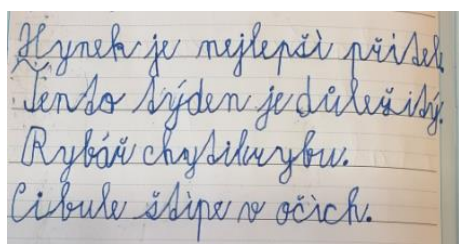 Hynek je nejlepší přítel.
Tento týden je důležitý.
Rybář chytil rybu.
Cibule štípe v očích.